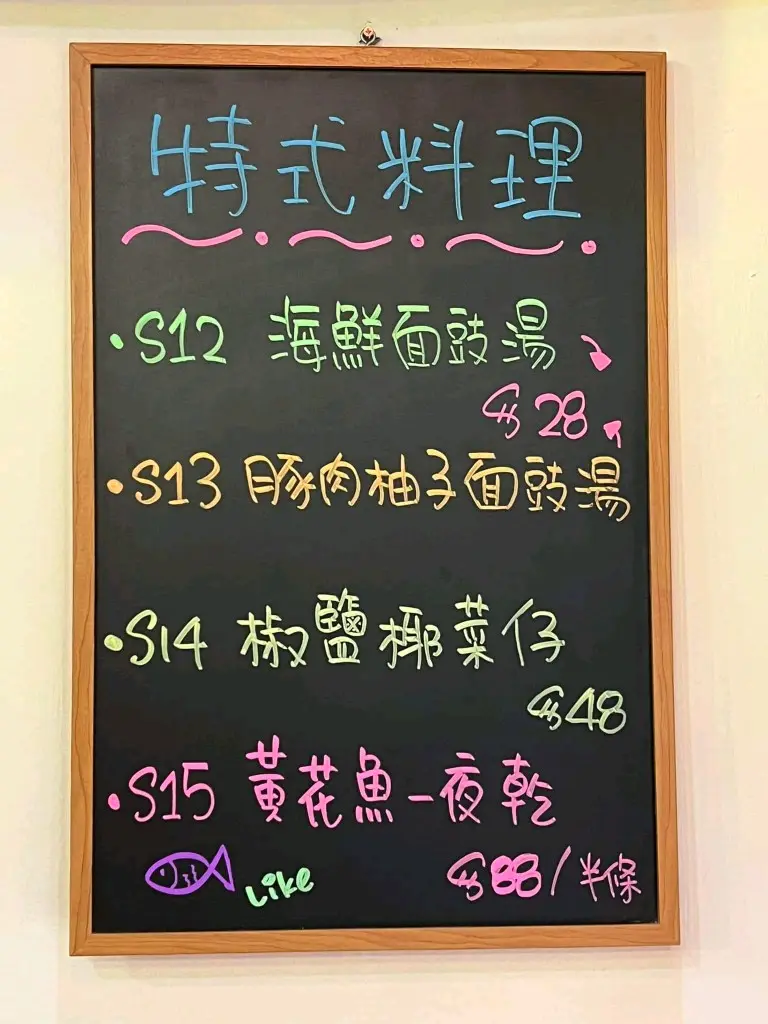 特式料理
•S12 海鮮面豉湯
$28
•S13 豚肉柚子面豉湯
•S14 椒鹽椰菜仔
$48
•S15 黃花魚一夜乾
Like $88/半條